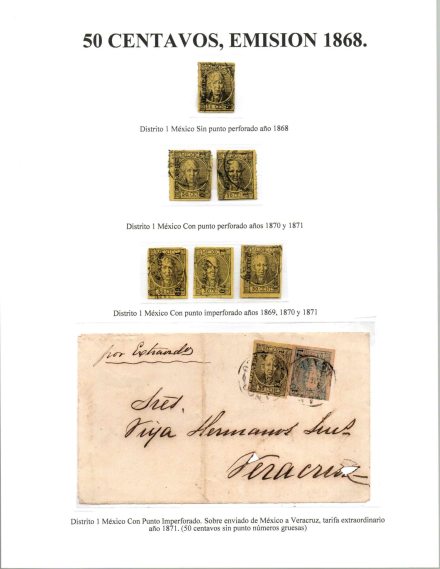 50 CENTAVOS, EMISION 1868.
Distrito 1 México Sin punto perforado año 1868
Distrito 1 México Con punto perforado años 1870 y 1871
Distrito 1 México Con punto imperforado años 1869, 1870 y 1871
por Extraordo
Sres.
Viya Hermanos Sucs
Veracruz
Distrito 1 México Con Punto Imperforado. Sobre enviado de México a Veracruz, tarifa extraordinario
año 1871. (50 centavos sin punto números gruesas)